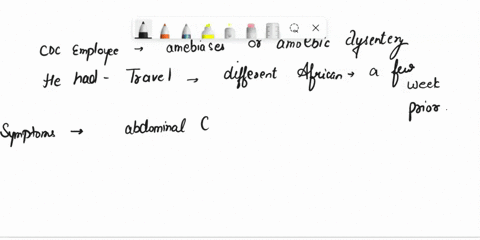 CDC Employee → amebiases or amoebic dysentery
He had - Travel → different African → a few
week
prior.
Symptoms → abdominal C